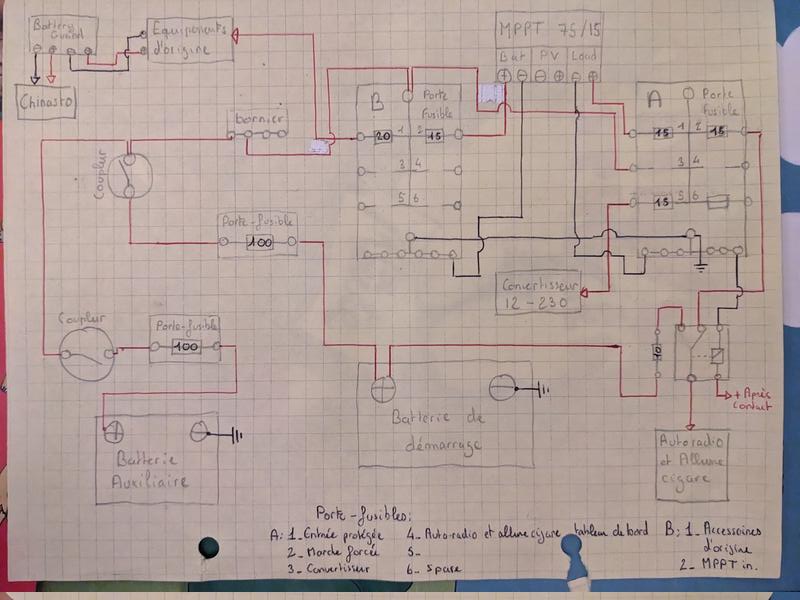 Battery
Guard
Equipements
d'origine
MPPT 75/15
Bat PV Load
Chinasto
bornier
B
Porte
fusible
20 1 2 15
3 4
5 6
A
Porte
fusible
15 1 2 15
3 4
15 5 6
Coupleur
Porte-fusible
100
Convertisseur
12-230
Coupleur
Porte-fusible
100
10
+ Après
contact
Batterie de
démarrage
Batterie
Auxiliaire
Autoradio
et Allume
cigare
Porte-fusibles:
A: 1_ Entrée protégée 4_ Auto-radio et allume cigare tableau de bord B: 1_ Accessoires
2_ Marche forcée 5_ d'origine
3_ Convertisseur 6_ spare 2_ MPPT in.